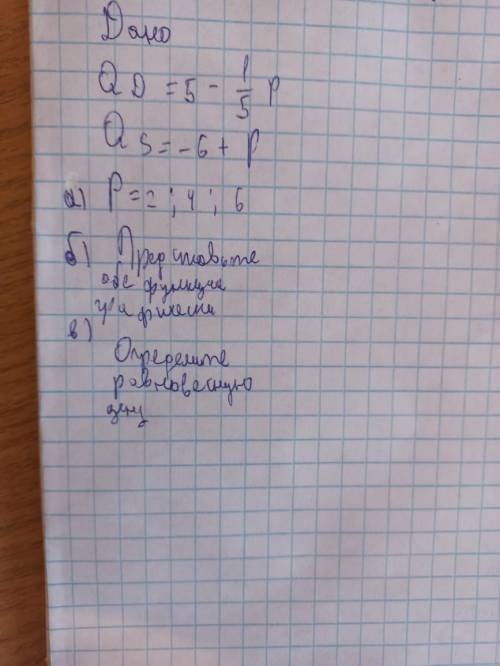 Дано
Q D = 5 - 1/5 P
Q S = -6 + P
а) P = 2 ; 4 ; 6
б) Представьте
обе функции
графически
в)
Определите
равновесную
цену